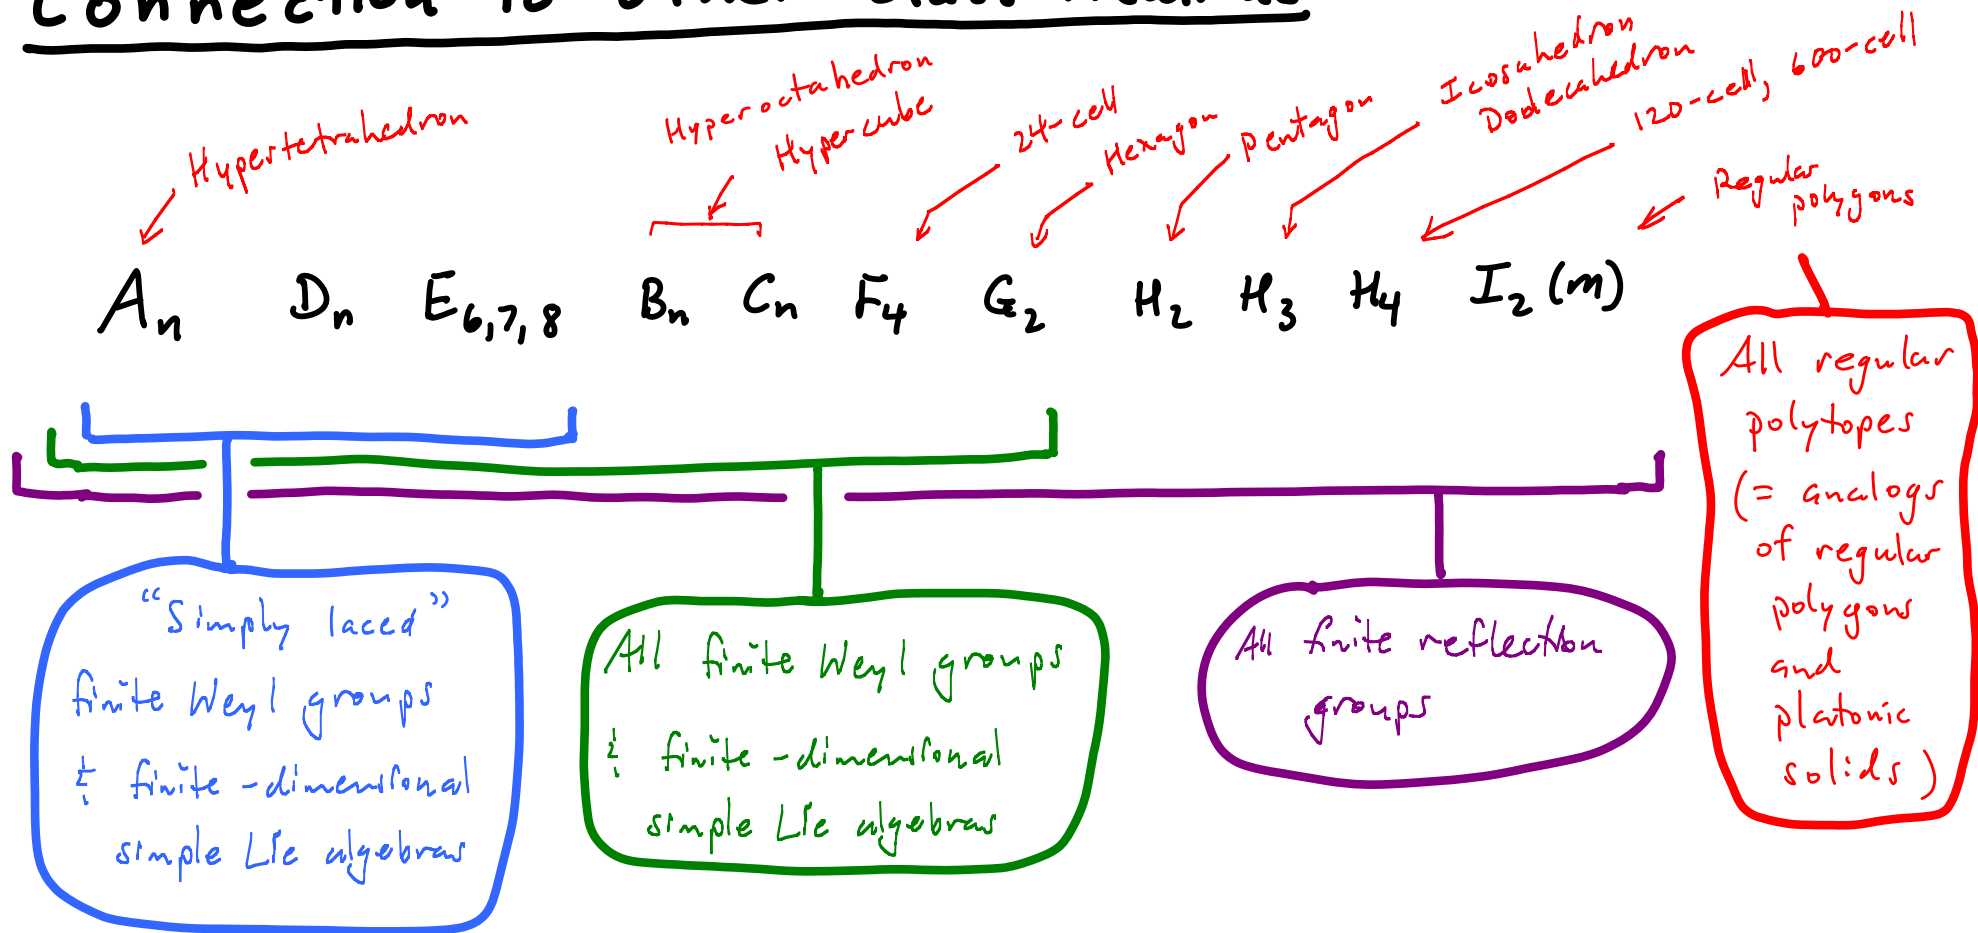 Connection to other classifications
Hypertetrahedron
Hyperoctahedron
Hypercube
24-cell
Hexagon
Pentagon
Icosahedron
Dodecahedron
120-cell, 600-cell
Regular
polygons
Aₙ Dₙ E₆,₇,₈ Bₙ Cₙ F₄ G₂ H₂ H₃ H₄ I₂(m)
"Simply laced"
finite Weyl groups
& finite-dimensional
simple Lie algebras
All finite Weyl groups
& finite-dimensional
simple Lie algebras
All finite reflection
groups
All regular
polytopes
(= analogs
of regular
polygons
and
platonic
solids)